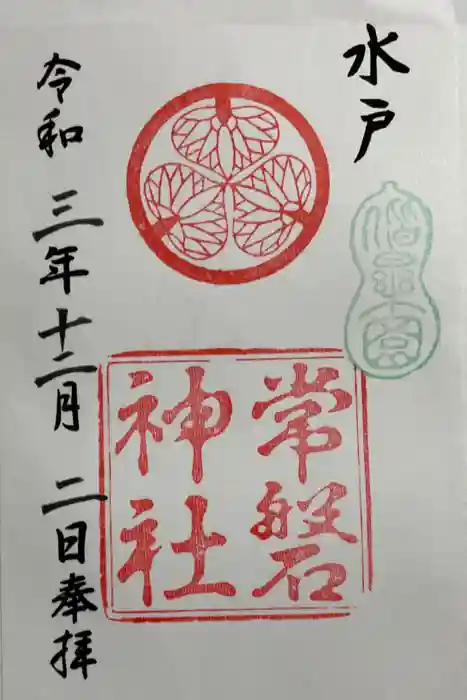 水戸
偕楽園
常磐
神社
令和三年十二月二日奉拝